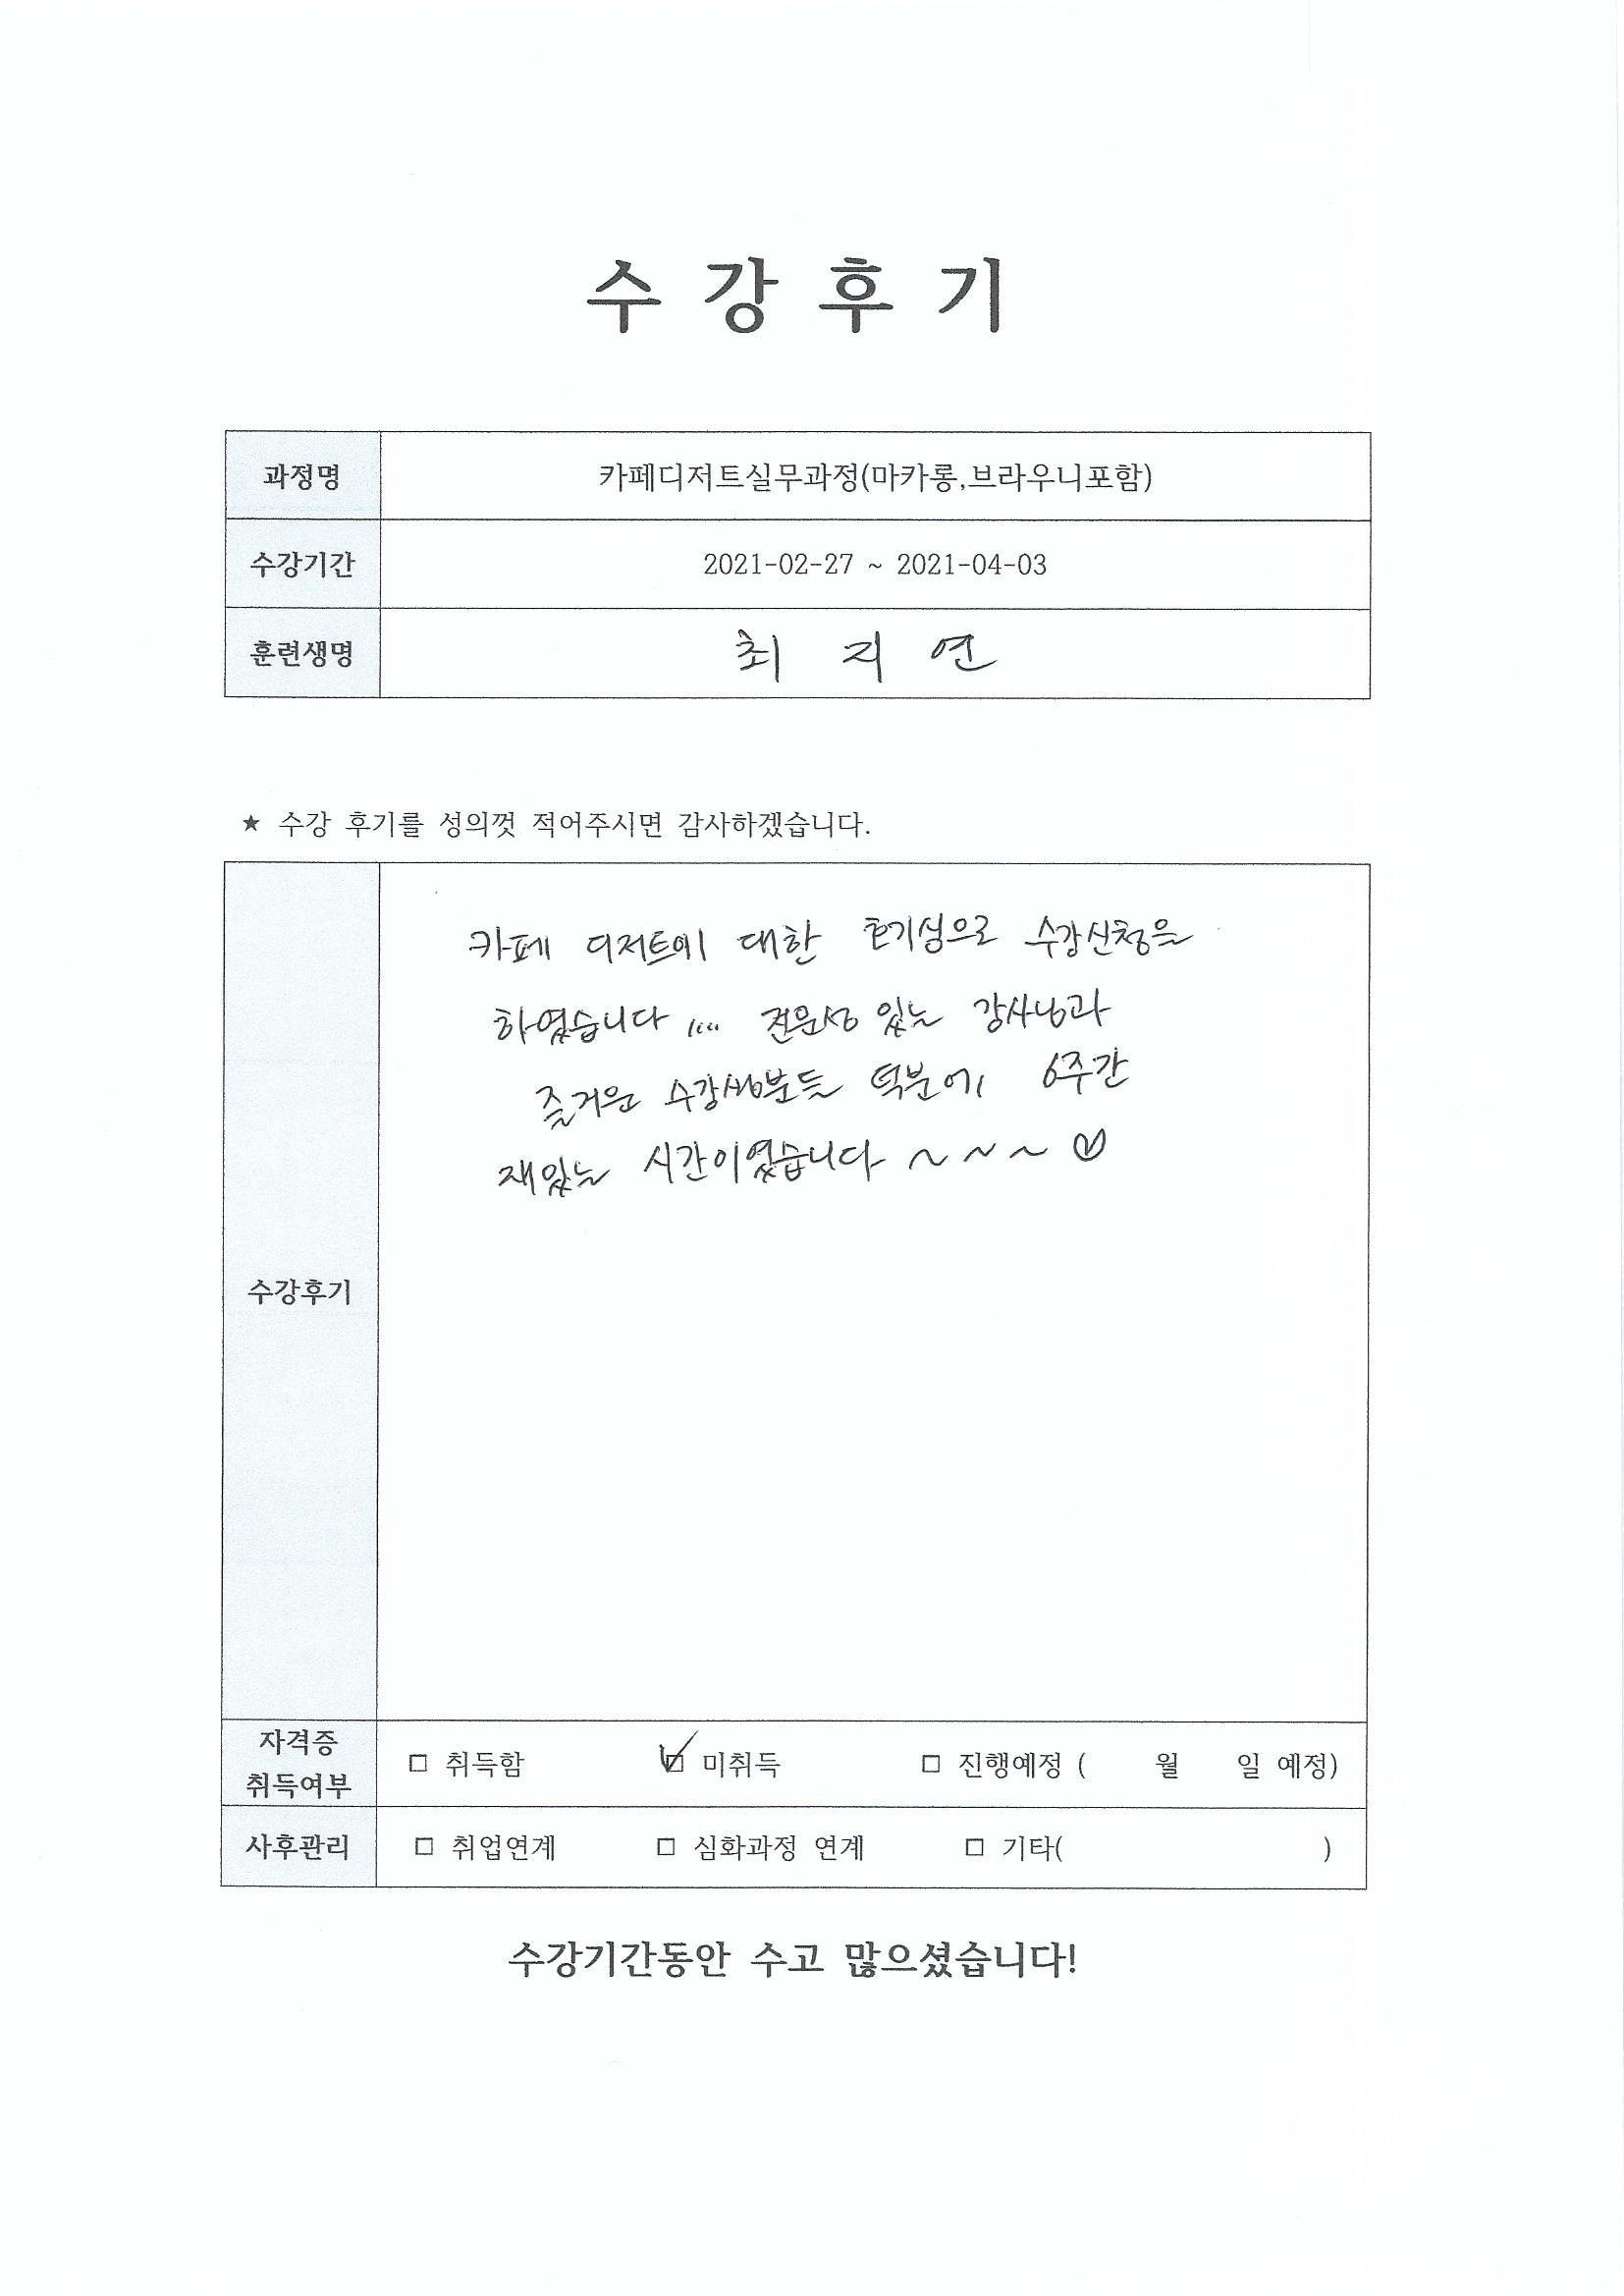 수 강 후 기
과정명 카페디저트실무과정(마카롱,브라우니포함)
수강기간 2021-02-27 ~ 2021-04-03
훈련생명 최 지 연
★ 수강 후기를 성의껏 적어주시면 감사하겠습니다.
수강후기
카페 디저트에 대한 호기심으로 수강신청을
하였습니다 .... 전문성 있는 강사님과
즐거운 수강생분들 덕분에, 6주간
재밌는 시간이였습니다 ~ ~ ~ ♡
자격증
취득여부
□ 취득함 ☑ 미취득 □ 진행예정 ( 월 일 예정)
사후관리 □ 취업연계 □ 심화과정 연계 □ 기타( )
수강기간동안 수고 많으셨습니다!